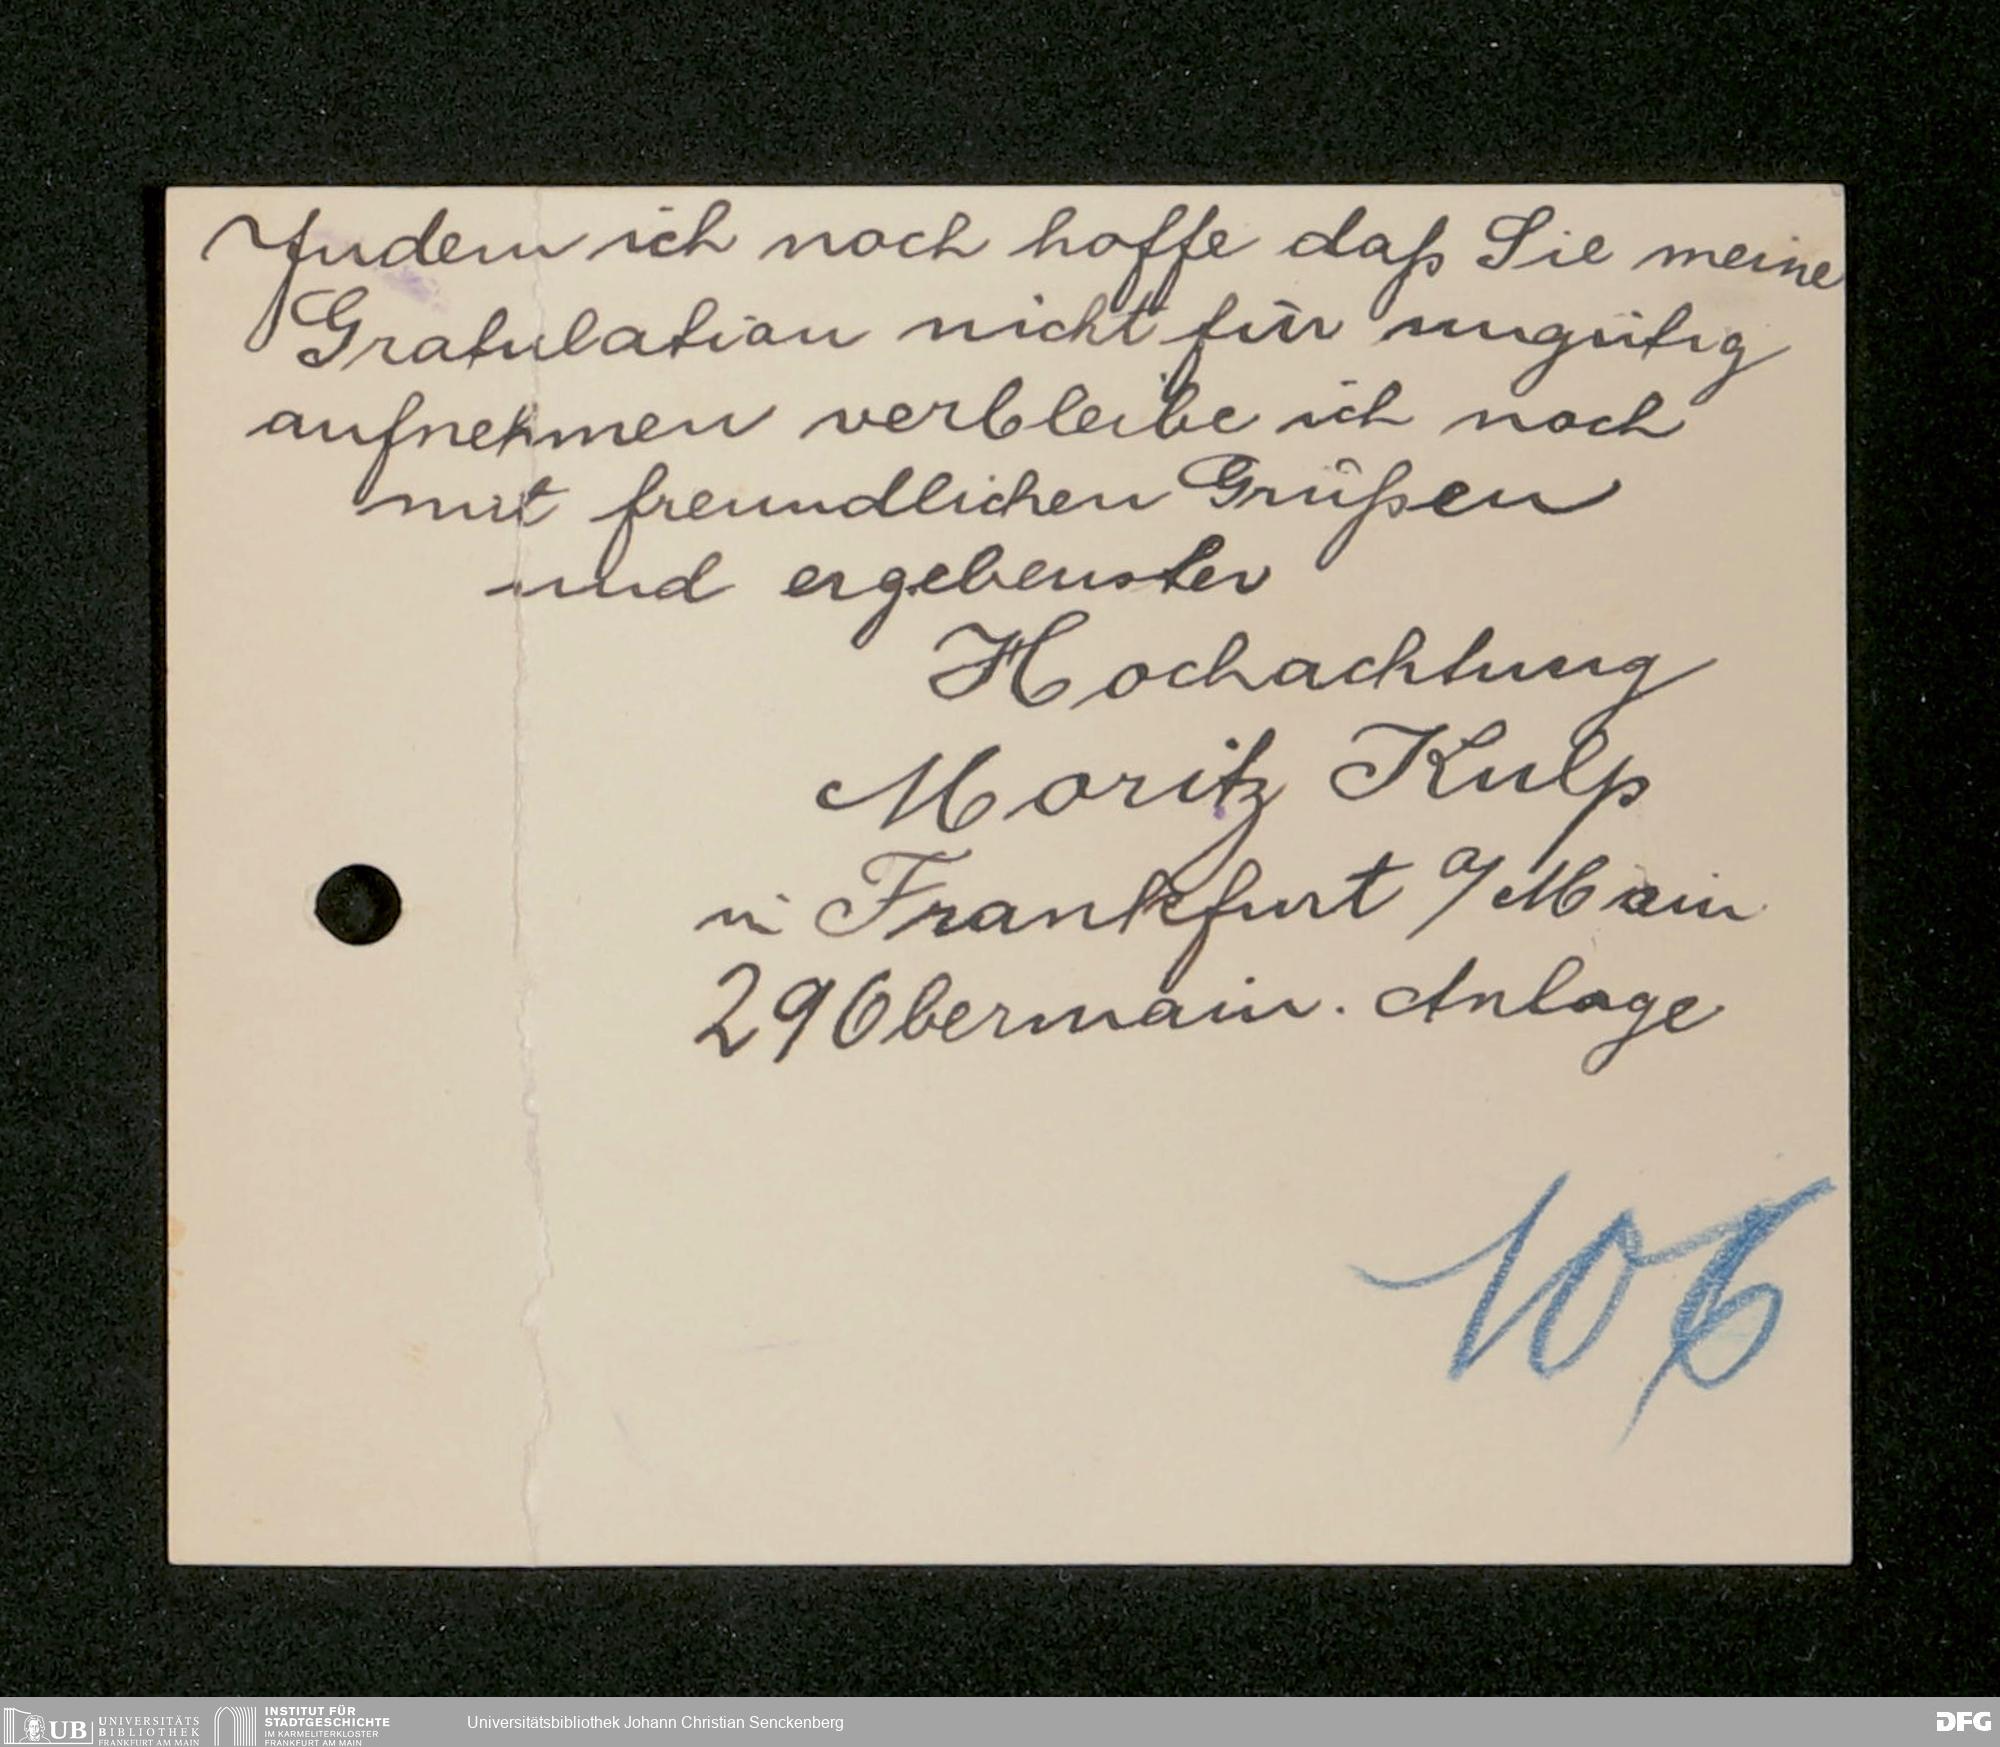 Indem ich noch hoffe daß Sie meine
Gratulation nicht für ungütig
aufnehmen verbleibe ich noch
mit freundlichen Grüßen
und ergebenster
Hochachtung
Moritz Kulp
in Frankfurt a/Main
29 Obermain. Anlage
106
UB
UNIVERSITÄTS
BIBLIOTHEK
FRANKFURT AM MAIN
INSTITUT FÜR
STADTGESCHICHTE
IM KARMELITERKLOSTER
FRANKFURT AM MAIN
Universitätsbibliothek Johann Christian Senckenberg
DFG